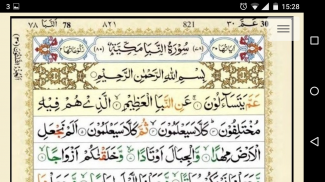 3 15:28
٧٨ النبا 78 ٨٢١ 821 ٣٠ عم 30
سُوْرَةُ النَّبَاِ مَكِّيَّةٌ
بِسْمِ اللّٰهِ الرَّحْمٰنِ الرَّحِيْمِ
عَمَّ يَتَسَآءَلُوْنَ ۞ عَنِ النَّبَاِ الْعَظِيْمِ ۞ الَّذِيْ هُمْ فِيْهِ
مُخْتَلِفُوْنَ ۞ كَلَّا سَيَعْلَمُوْنَ ۞ ثُمَّ كَلَّا سَيَعْلَمُوْنَ ۞ اَلَمْ نَجْعَلِ
الْاَرْضَ مِهٰدًا ۞ وَّالْجِبَالَ اَوْتَادًا ۞ وَّخَلَقْنٰكُمْ اَزْوَاجًا ۞